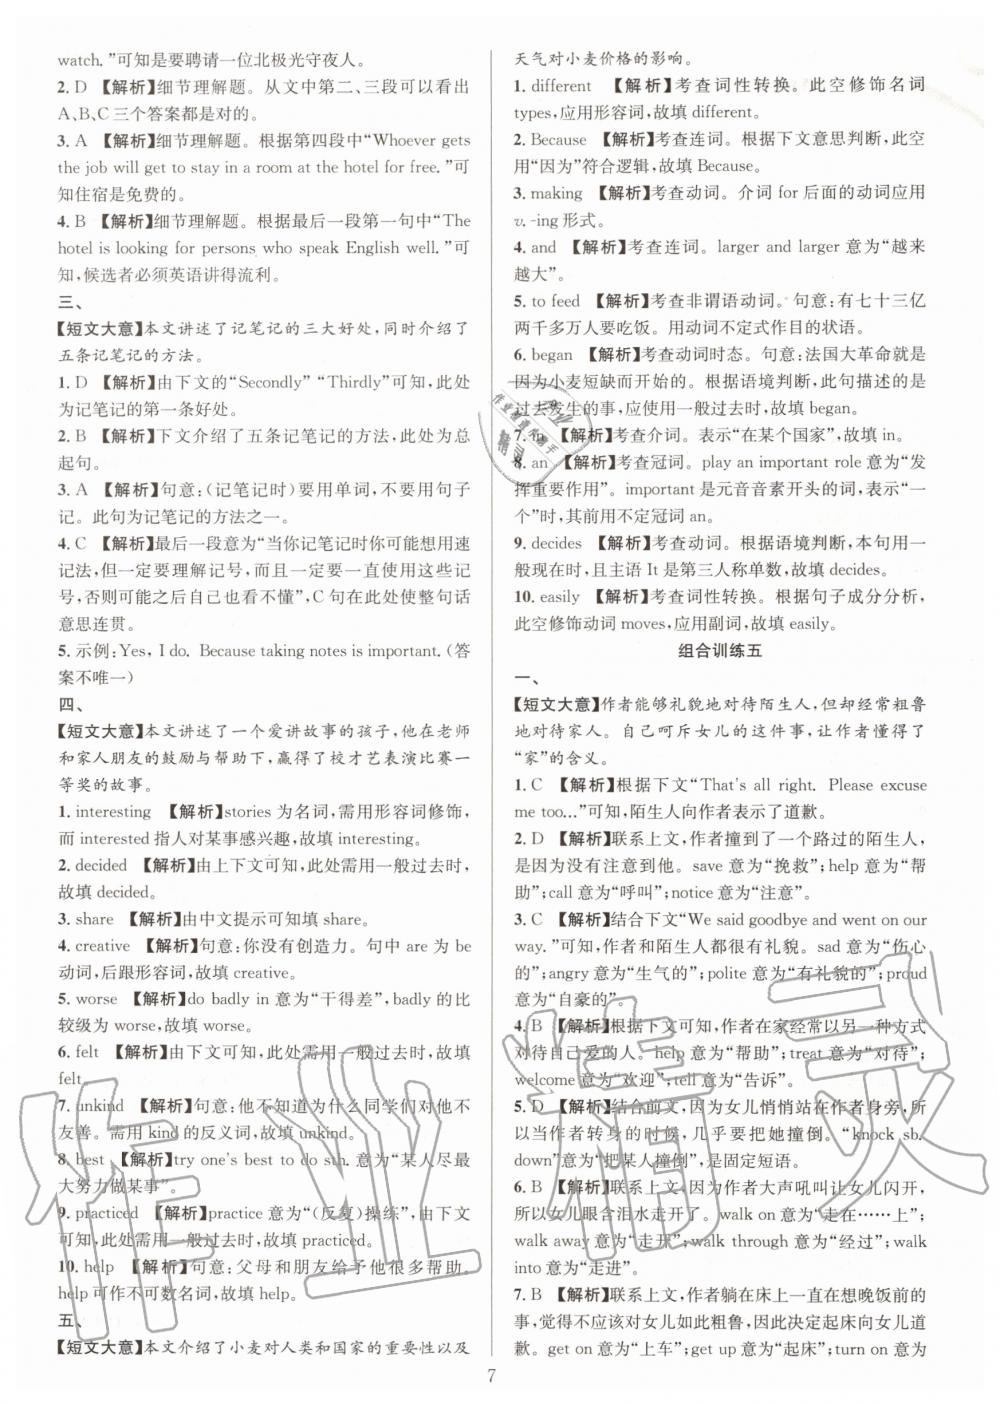 watch.”可知是要聘请一位北极光守夜人。
2. D 【解析】细节理解题。从文中第二、三段可以看出
A、B、C三个答案都是对的。
3. A 【解析】细节理解题。根据第四段中“Whoever gets
the job will get to stay in a room at the hotel for free.”可
知住宿是免费的。
4. B 【解析】细节理解题。根据最后一段第一句中“The
hotel is looking for persons who speak English well.”可
知,候选者必须英语讲得流利。
三、
【短文大意】本文讲述了记笔记的三大好处,同时介绍了
五条记笔记的方法。
1. D 【解析】由下文的“Secondly”“Thirdly”可知,此处
为记笔记的第一条好处。
2. B 【解析】下文介绍了五条记笔记的方法,此处为总
起句。
3. A 【解析】句意:(记笔记时)要用单词,不要用句子
记。此句为记笔记的方法之一。
4. C 【解析】最后一段意为“当你记笔记时你可能想用速
记法,但一定要理解记号,而且一定要一直使用这些记
号,否则可能之后自己也看不懂”,C句在此处使整句话
意思连贯。
5. 示例:Yes, I do. Because taking notes is important.(答
案不唯一)
四、
【短文大意】本文讲述了一个爱讲故事的孩子,他在老师
和家人朋友的鼓励与帮助下,赢得了校才艺表演比赛一
等奖的故事。
1. interesting 【解析】stories 为名词,需用形容词修饰,
而 interested 指人对某事感兴趣,故填 interesting。
2. decided 【解析】由上下文可知,此处需用一般过去时,
故填 decided。
3. share 【解析】由中文提示可知填 share。
4. creative 【解析】句意:你没有创造力。句中 are 为 be
动词,后跟形容词,故填 creative。
5. worse 【解析】do badly in 意为“干得差”,badly 的比
较级为 worse,故填 worse。
6. felt 【解析】由下文可知,此处需用一般过去时,故填
felt。
7. unkind 【解析】句意:他不知道为什么同学们对他不
友善。需用 kind 的反义词,故填 unkind。
8. best 【解析】try one's best to do sth. 意为“某人尽最
大努力做某事”。
9. practiced 【解析】practice 意为“(反复)操练”,由下文
可知,此处需用一般过去时,故填 practiced。
10. help 【解析】句意:父母和朋友给予他很多帮助。
help 可作不可数名词,故填 help。
五、
【短文大意】本文介绍了小麦对人类和国家的重要性以及
天气对小麦价格的影响。
1. different 【解析】考查词性转换。此空修饰名词
types,应用形容词,故填 different。
2. Because 【解析】考查连词。根据下文意思判断,此空
用“因为”符合逻辑,故填 Because。
3. making 【解析】考查动词。介词 for 后面的动词应用
v. -ing 形式。
4. and 【解析】考查连词。larger and larger 意为“越来
越大”。
5. to feed 【解析】考查非谓语动词。句意:有七十三亿
两千多万人要吃饭。用动词不定式作目的状语。
6. began 【解析】考查动词时态。句意:法国大革命就是
因为小麦短缺而开始的。根据语境判断,此句描述的是
过去发生的事,应使用一般过去时,故填 began。
7. in 【解析】考查介词。表示“在某个国家”,故填 in。
8. an 【解析】考查冠词。play an important role 意为“发
挥重要作用”。important 是元音音素开头的词,表示“一
个”时,其前用不定冠词 an。
9. decides 【解析】考查动词。根据语境判断,本句用一
般现在时,且主语 It 是第三人称单数,故填 decides。
10. easily 【解析】考查词性转换。根据句子成分分析,
此空修饰动词 moves,应用副词,故填 easily。
组合训练五
一、
【短文大意】作者能够礼貌地对待陌生人,但却经常粗鲁
地对待家人。自己呵斥女儿的这件事,让作者懂得了
“家”的含义。
1. C 【解析】根据下文“That's all right. Please excuse
me too...”可知,陌生人向作者表示了道歉。
2. D 【解析】联系上文,作者撞到了一个路过的陌生人,
是因为没有注意到他。save 意为“挽救”;help 意为“帮
助”;call 意为“呼叫”;notice 意为“注意”。
3. C 【解析】结合下文“We said goodbye and went on our
way.”可知,作者和陌生人都很有礼貌。sad 意为“伤心
的”;angry 意为“生气的”;polite 意为“有礼貌的”;proud
意为“自豪的”。
4. B 【解析】根据下文可知,作者在家经常以另一种方式
对待自己爱的人。help 意为“帮助”;treat 意为“对待”;
welcome 意为“欢迎”;tell 意为“告诉”。
5. D 【解析】结合前文,因为女儿悄悄站在作者身旁,所
以当作者转身的时候,几乎要把她撞倒。“knock sb.
down”意为“把某人撞倒”,是固定短语。
6. B 【解析】联系上文,因为作者大声吼叫让女儿闪开,
所以女儿眼含泪水走开了。walk on 意为“走在……上”;
walk away 意为“走开”;walk through 意为“经过”;walk
into 意为“走进”。
7. B 【解析】联系上下文,作者躺在床上一直在想晚饭前的
事,觉得不应该对女儿如此粗鲁,因此决定起床向女儿道
歉。get on 意为“上车”;get up 意为“起床”;turn on 意为
7
作业精灵